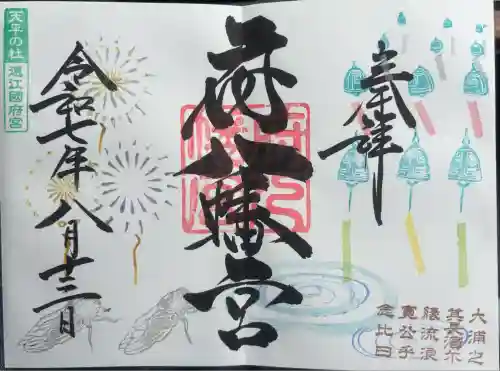 奉拝
府八幡宮
府八
幡宮
令和七年八月十三日
天平の杜
遠江國府宮
大浦之
其長濱尓
縁流浪
寛公乎
念比日